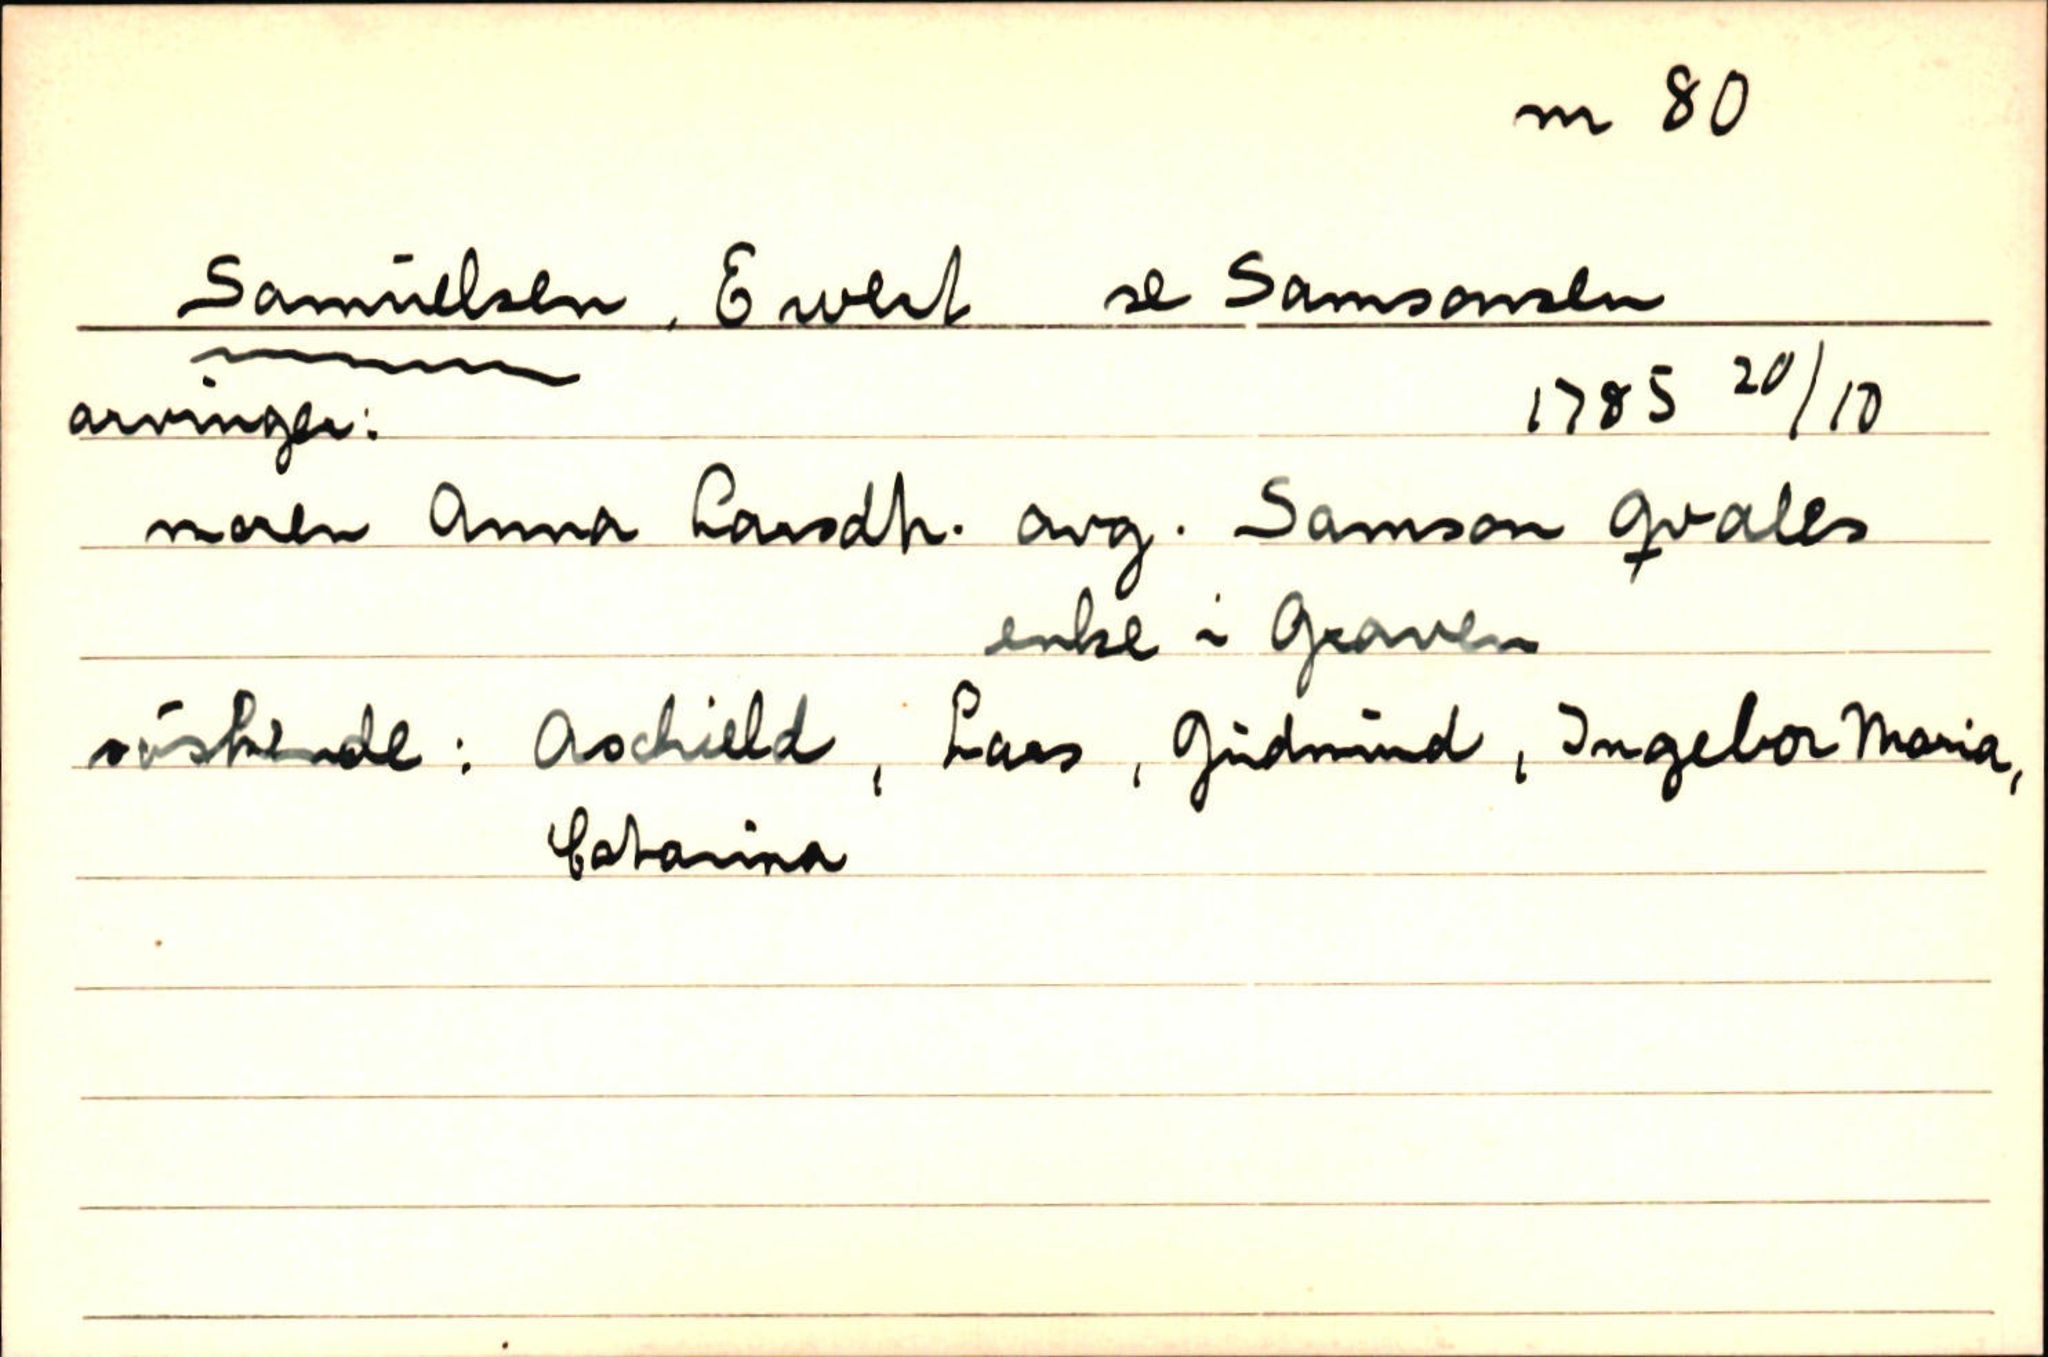 m 80
Samuelsen, Ewert se Samsonsen
arvinger: 1785 20/10
moren Anna Larsdtr. avg. Samson Qvales
enke i Graven
söskende: Aschield, Lars, Gudmund, Ingebor Maria,
Catarina